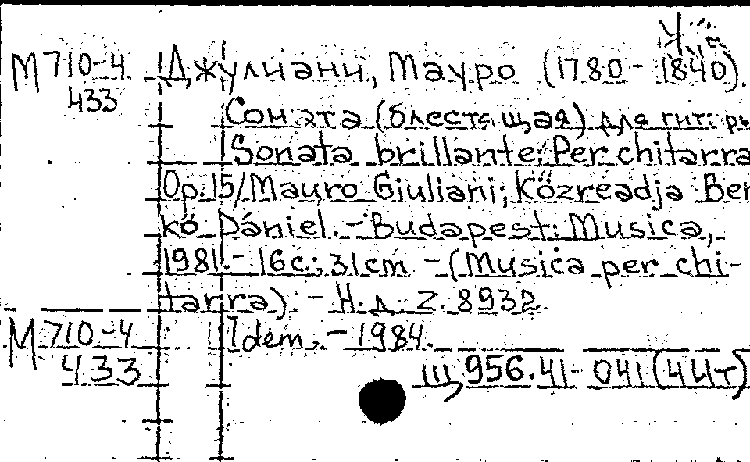 М 710-4 Джулиани, Мауро (1780-1840).
433
Соната (блестящая) для гит. =
Sonata brillante: Per chitarra
Op. 15/Mauro Giuliani; Közreadja Ben-
kő Dániel. - Budapest: Musica,
1981. - 16 c.; 31 cm - (Musica per chi-
tarra). - Н. д. Z. 8932
М 710-4 Idem. - 1984.
433
Щ 956.41-041(4Ит)